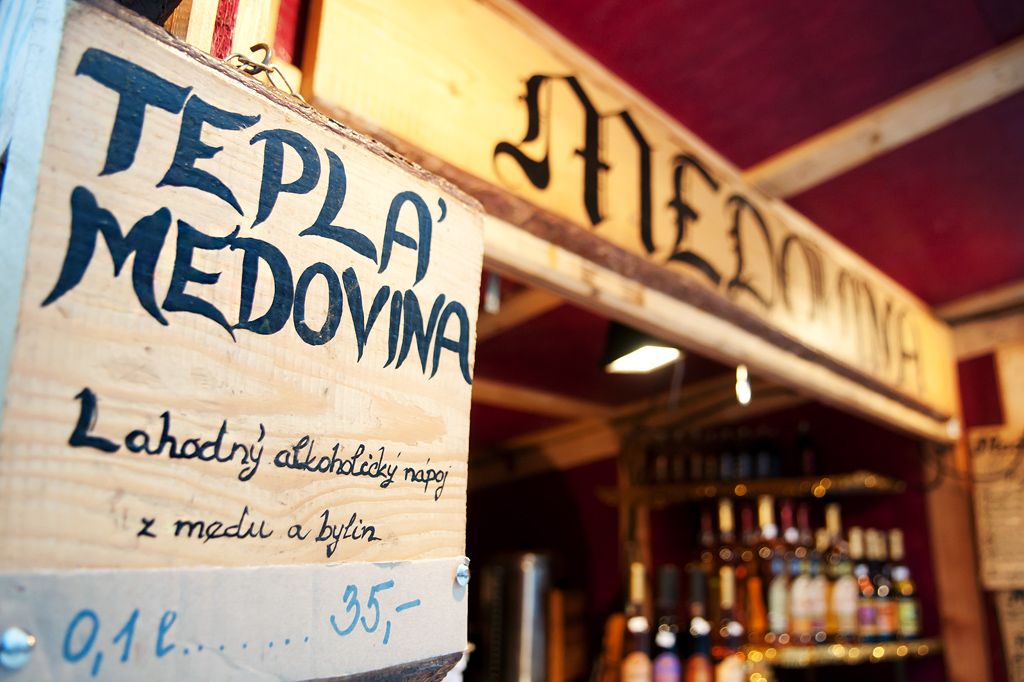 TEPLÁ
MEDOVINA
Lahodný alkoholický nápoj
z medu a bylin
0,1 l....... 35,-
MEDOVINA